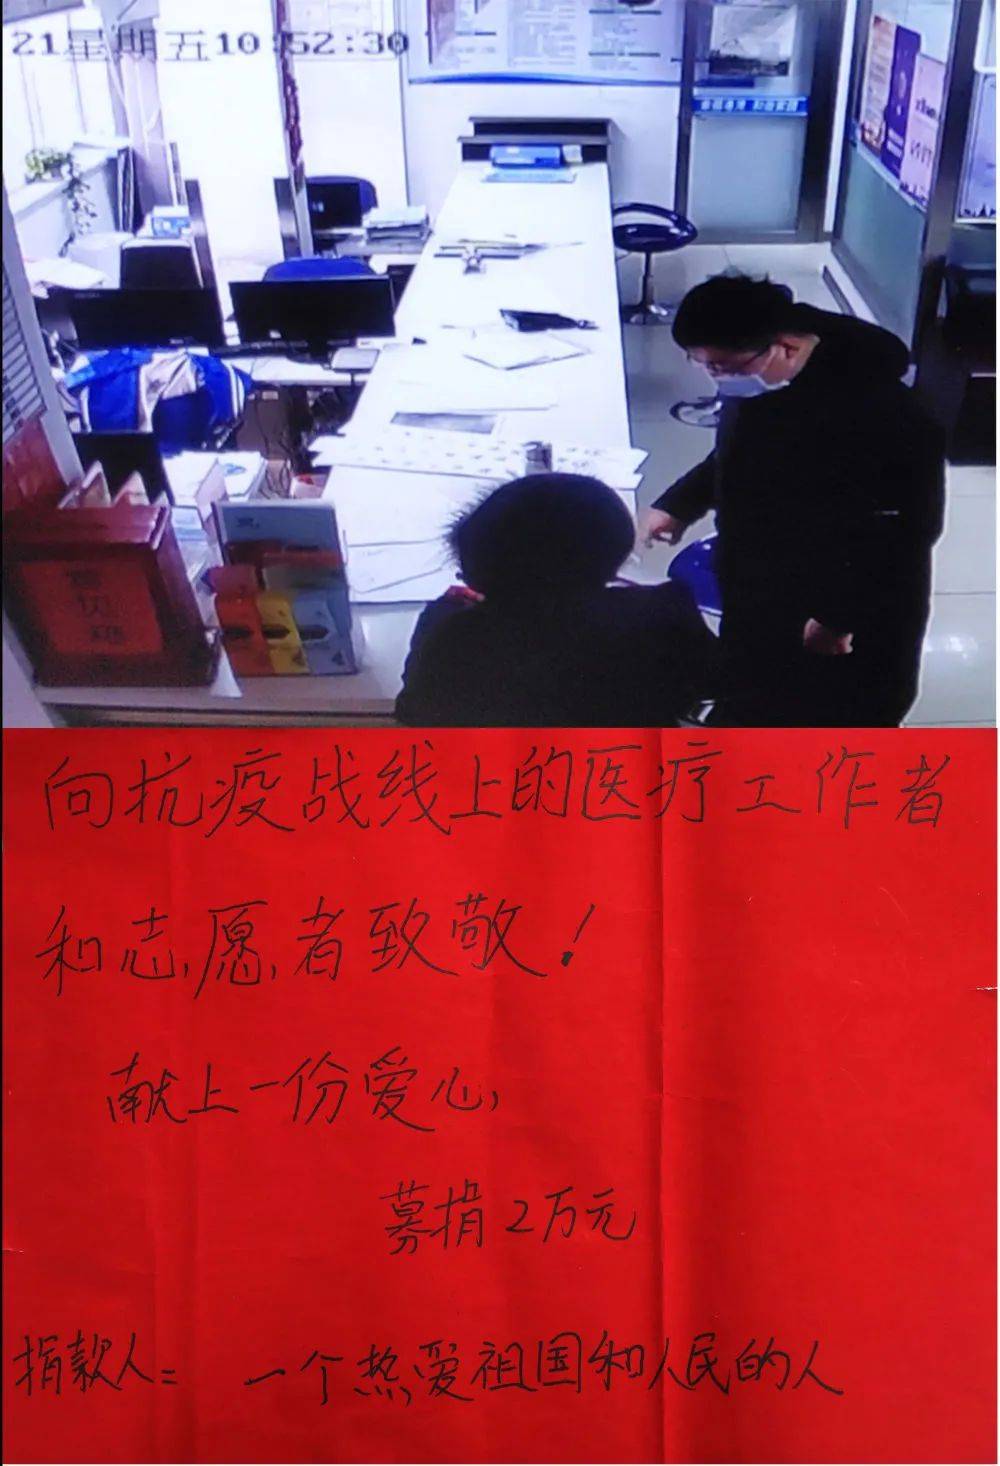 21星期五10:52:30
意见箱
向抗疫战线上的医疗工作者
和志愿者致敬！
献上一份爱心，
募捐2万元
捐款人：一个热爱祖国和人民的人